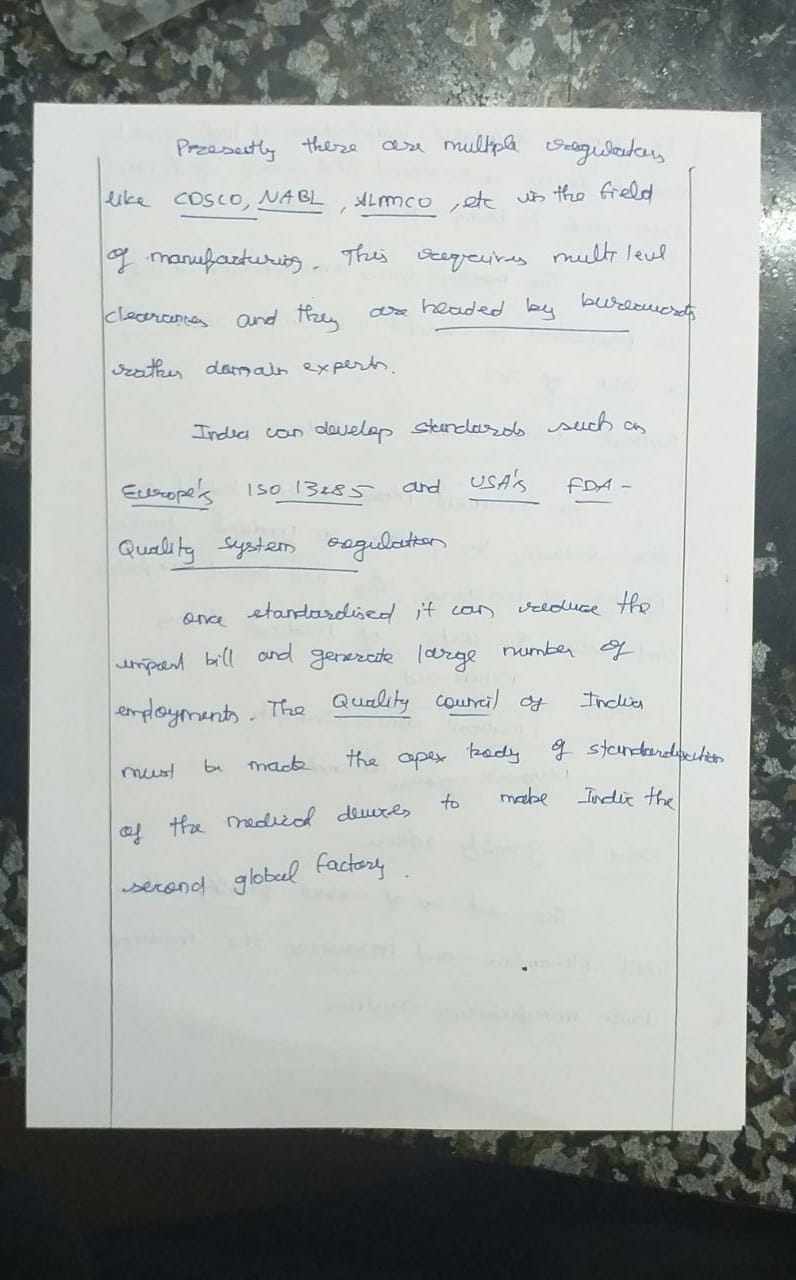 Presently there are multiple regulators
like CDSCO, NABL, ALIMCO, etc in the field
of manufacturing. This requires multi level
clearances and they are headed by bureaucrats
rather domain experts.
India can develop standards such as
Europe's ISO 13485 and USA's FDA-
Quality system regulation
once standardised it can reduce the
import bill and generate large number of
employments. The Quality council of India
must be made the apex body of standardization
of the medical devices to make India the
second global factory.